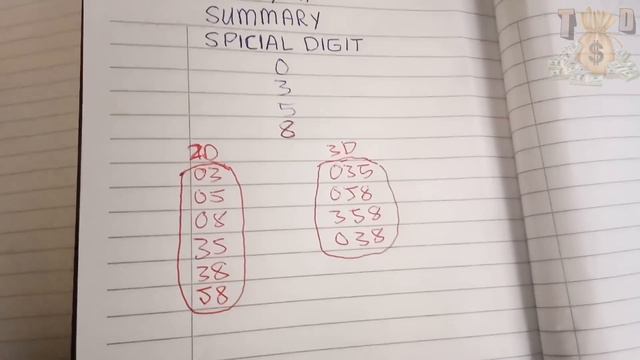 SUMMARY
SPICIAL DIGIT
0
3
5
8
2D
03
05
08
35
38
58
3D
035
058
358
038
T D
$